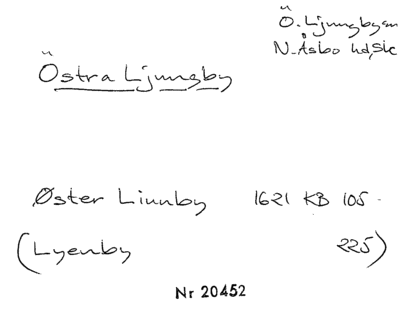 Ö. Ljungby sn
N. Åsbo hd, Sk
Östra Ljungby
Øster Liunby 1621 KB 105
(Lyenby 225)
Nr 20452